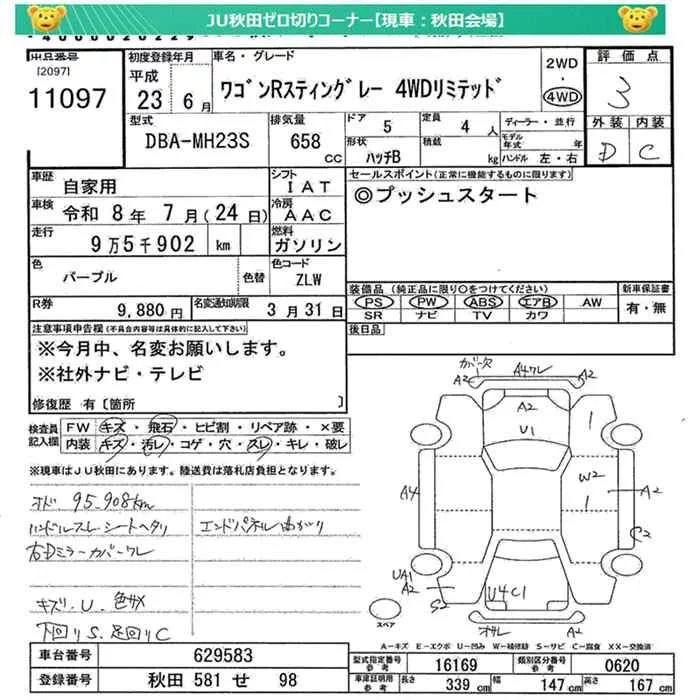 JU秋田ゼロ切りコーナー【現車：秋田会場】
出品番号
[2097]
11097
初度登録年月
平成
23 6月
車名・グレード
ワゴンRスティングレー 4WDリミテッド
2WD
・
4WD
評価点
3
外装 内装
D C
型式
DBA-MH23S
排気量
658
CC
ドア 5
定員 4人
形状 ハッチB
積載 kg
ディーラー・並行
モデル年式 年
ハンドル 左・右
車歴 自家用
シフト IAT
車検 令和 8年 7月(24日)
冷房 AAC
走行 9万5千902 km
燃料 ガソリン
色 パープル 色替
色コード ZLW
R券 9,880円
名変通知期限 3月31日
セールスポイント(正常に機能するものに限ります)
◎プッシュスタート
装備品(純正品に限り○をつけてください)
PS PW ABS エアB AW
SR ナビ TV カワ
新車保証書
有・無
後日品
注意事項申告欄(不具合内容等は具体的に記入して下さい)
※今月中、名変お願いします。
※社外ナビ・テレビ
修復歴 有〔箇所 〕
検査員記入欄
FW キズ・飛石・ヒビ割・リペア跡・×要
内装 キズ・汚レ・コゲ・穴・スレ・キレ・破レ
※現車はJU秋田にあります。陸送費は落札店負担となります。
オド 95,908km
ハンドルスレ・シートヘタリ
エンドパネル曲がり
右Dミラーカバーワレ
キズ.U.色サメ
下回りS.足回りC
ガバ欠
A2 A4ワレ A2
A2
U1
1
A4
W2
1
A2
S2
UA1
A2
S2
U4C1
スペア
A2
A-キズ E-エクボ U-凹み W-補修跡 S-サビ C-腐食 XX-交換済
車台番号 629583
登録番号 秋田 581 せ 98
型式指定番号 参考 16169
類別区分番号 参考 0620
車庫証明用 参考 長さ 339cm 幅 147cm 高さ 167cm